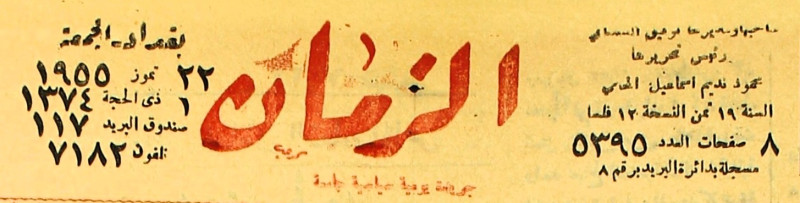 صاحبها ومديرها توفيق السمعاني
رئيس تحريرها
محمود نديم اسماعيل المحامي
السنة ١٩ ثمن النسخة ١٢ فلسا
٨ صفحات العدد ٥٣٩٥
مسجلة بدائرة البريد برقم ٨
الزمان
جريدة يومية سياسية جامعة
بغداد الجمعة
٢٢ تموز ١٩٥٥
١ ذى الحجة ١٣٧٤
صندوق البريد ١١٧
تلفون ٧١٨٢